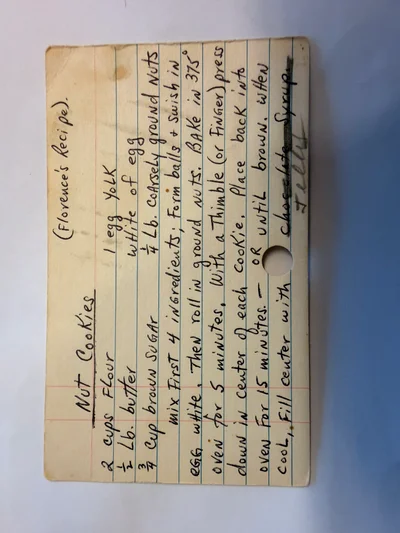 Nut Cookies (Florence's Recipe).
2 cups Flour 1 egg Yolk
½ Lb. butter white of egg
¾ cup brown sugar ¼ Lb. coarsely ground nuts
mix First 4 ingredients; Form balls + swish in
egg white. Then roll in ground nuts. Bake in 375°
oven for 5 minutes. With a Thimble (or Finger) press
down in center of each cookie. Place back into
oven for 15 minutes. — or until brown. When
cool, Fill center with chocolate syrup.
Jelly